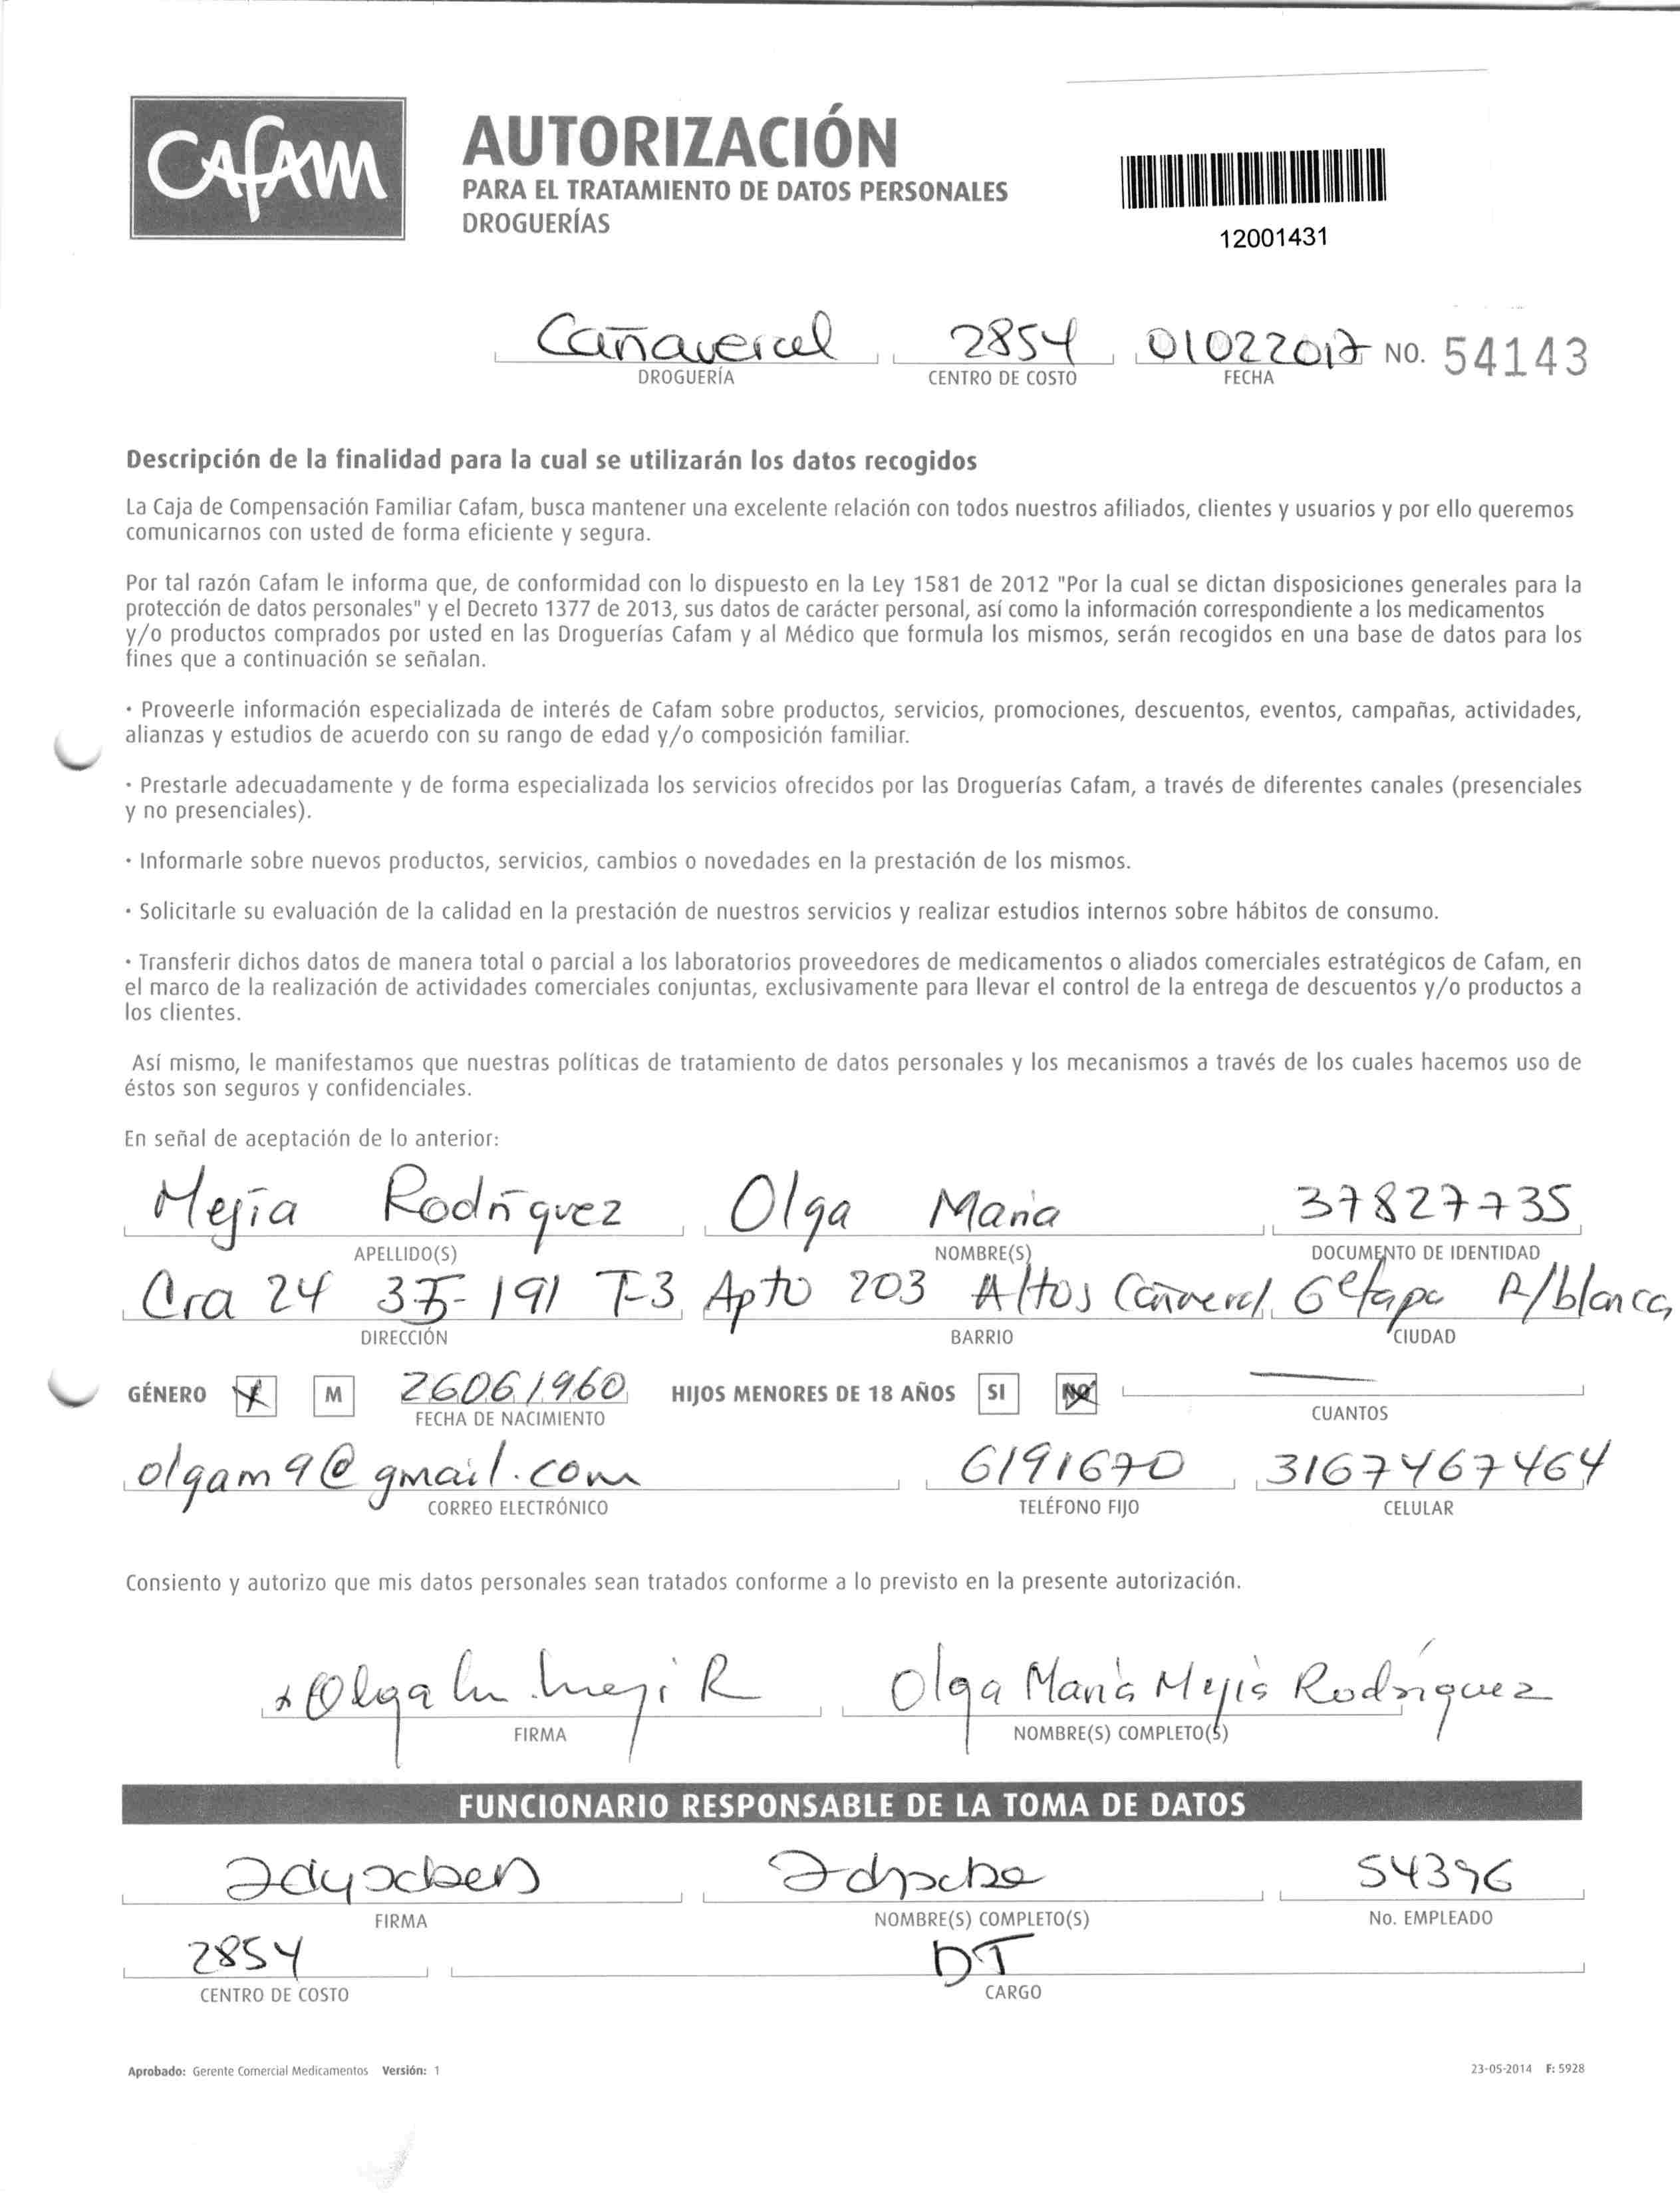 Cafam
AUTORIZACIÓN
PARA EL TRATAMIENTO DE DATOS PERSONALES
DROGUERÍAS
12001431
Cañaveral 2854 01022017 NO. 54143
DROGUERÍA CENTRO DE COSTO FECHA
Descripción de la finalidad para la cual se utilizarán los datos recogidos
La Caja de Compensación Familiar Cafam, busca mantener una excelente relación con todos nuestros afiliados, clientes y usuarios y por ello queremos
comunicarnos con usted de forma eficiente y segura.
Por tal razón Cafam le informa que, de conformidad con lo dispuesto en la Ley 1581 de 2012 "Por la cual se dictan disposiciones generales para la
protección de datos personales" y el Decreto 1377 de 2013, sus datos de carácter personal, así como la información correspondiente a los medicamentos
y/o productos comprados por usted en las Droguerías Cafam y al Médico que formula los mismos, serán recogidos en una base de datos para los
fines que a continuación se señalan.
· Proveerle información especializada de interés de Cafam sobre productos, servicios, promociones, descuentos, eventos, campañas, actividades,
alianzas y estudios de acuerdo con su rango de edad y/o composición familiar.
· Prestarle adecuadamente y de forma especializada los servicios ofrecidos por las Droguerías Cafam, a través de diferentes canales (presenciales
y no presenciales).
· Informarle sobre nuevos productos, servicios, cambios o novedades en la prestación de los mismos.
· Solicitarle su evaluación de la calidad en la prestación de nuestros servicios y realizar estudios internos sobre hábitos de consumo.
· Transferir dichos datos de manera total o parcial a los laboratorios proveedores de medicamentos o aliados comerciales estratégicos de Cafam, en
el marco de la realización de actividades comerciales conjuntas, exclusivamente para llevar el control de la entrega de descuentos y/o productos a
los clientes.
Así mismo, le manifestamos que nuestras políticas de tratamiento de datos personales y los mecanismos a través de los cuales hacemos uso de
éstos son seguros y confidenciales.
En señal de aceptación de lo anterior:
Mejía Rodríguez Olga María 37827735
APELLIDO(S) NOMBRE(S) DOCUMENTO DE IDENTIDAD
Cra 24 35-191 T-3 Apto 203 Altos Cañaveral 6 etapa R/blanca
DIRECCIÓN BARRIO CIUDAD
GÉNERO M 26061960 HIJOS MENORES DE 18 AÑOS SI NO
FECHA DE NACIMIENTO CUANTOS
olgam9@gmail.com 6191670 3167467464
CORREO ELECTRÓNICO TELÉFONO FIJO CELULAR
Consiento y autorizo que mis datos personales sean tratados conforme a lo previsto en la presente autorización.
Olga R Olga María Mejía Rodríguez
FIRMA NOMBRE(S) COMPLETO(S)
FUNCIONARIO RESPONSABLE DE LA TOMA DE DATOS
54396
FIRMA NOMBRE(S) COMPLETO(S) No. EMPLEADO
2854 DT
CENTRO DE COSTO CARGO
Aprobado: Gerente Comercial Medicamentos Versión: 1 23-05-2014 F: 5928